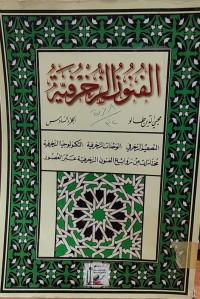 الفنون الزخرفية
محيي الدين طالو
الجزء السادس
التصميم الزخرفي الوحدات الزخرفية التكنولوجيا الزخرفية
من روايع الفنون الزخرفية عبر العصور